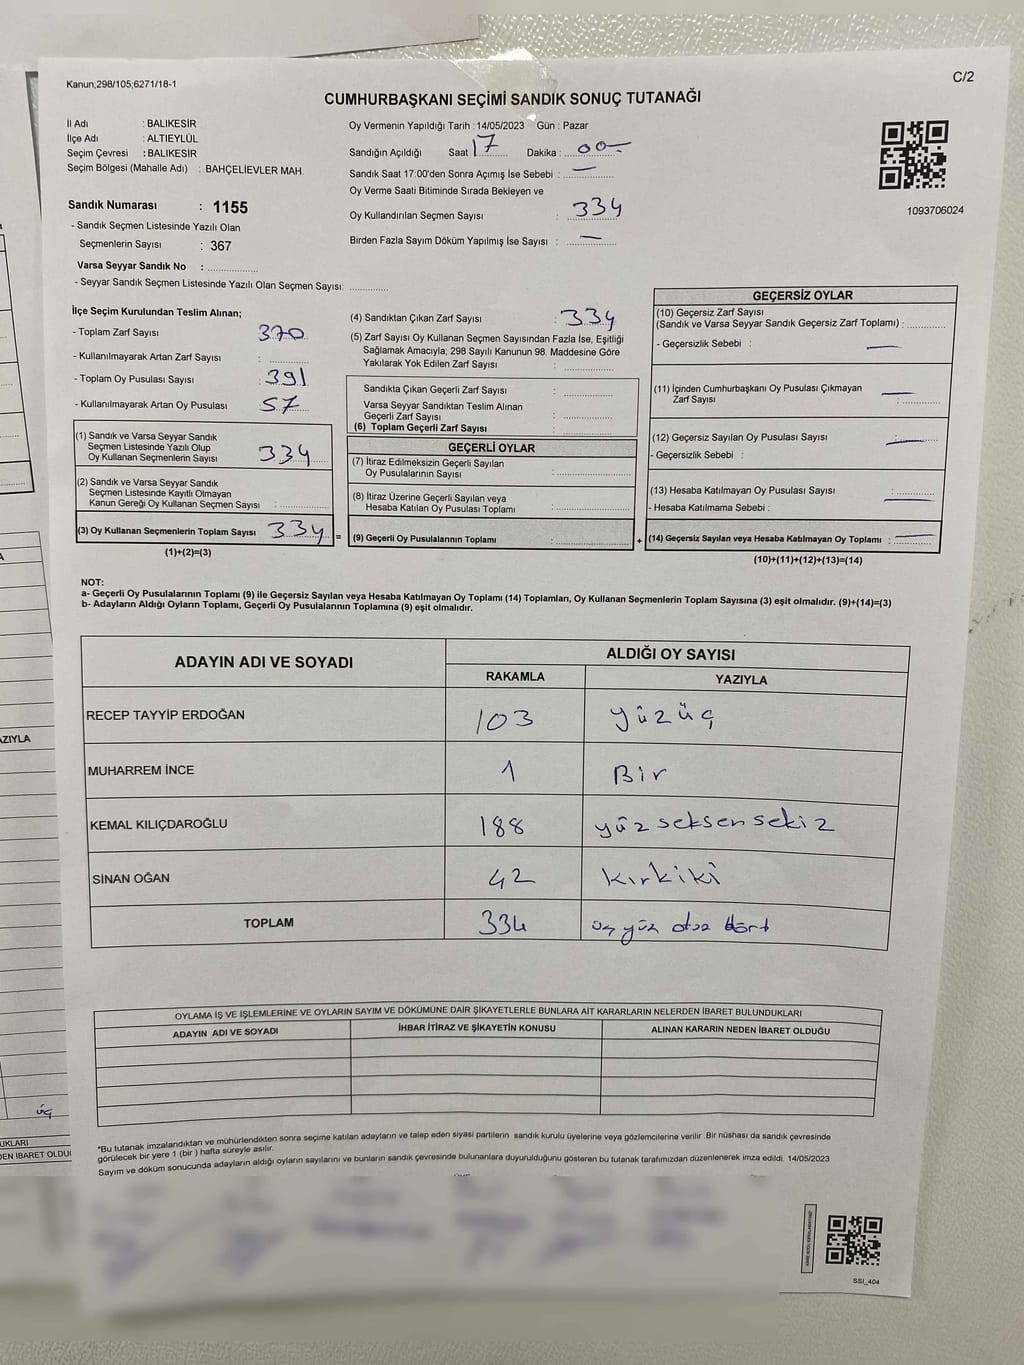 Kanun;298/105;6271/18-1
C/2
CUMHURBAŞKANI SEÇİMİ SANDIK SONUÇ TUTANAĞI
İl Adı : BALIKESİR
İlçe Adı : ALTIEYLÜL
Seçim Çevresi : BALIKESİR
Seçim Bölgesi (Mahalle Adı) : BAHÇELİEVLER MAH.
Sandık Numarası : 1155
- Sandık Seçmen Listesinde Yazılı Olan
Seçmenlerin Sayısı : 367
Varsa Seyyar Sandık No : ..................
- Seyyar Sandık Seçmen Listesinde Yazılı Olan Seçmen Sayısı: ..............
Oy Vermenin Yapıldığı Tarih : 14/05/2023 Gün : Pazar
Sandığın Açıldığı Saat 17 Dakika : 00-
Sandık Saat 17:00'den Sonra Açımış İse Sebebi : —
Oy Verme Saati Bitiminde Sırada Bekleyen ve
Oy Kullandırılan Seçmen Sayısı : 334
Birden Fazla Sayım Döküm Yapılmış İse Sayısı : —
1093706024
İlçe Seçim Kurulundan Teslim Alınan;
- Toplam Zarf Sayısı 370
- Kullanılmayarak Artan Zarf Sayısı : ..............
- Toplam Oy Pusulası Sayısı : 391
- Kullanılmayarak Artan Oy Pusulası 57
(1) Sandık ve Varsa Seyyar Sandık
Seçmen Listesinde Yazılı Olup
Oy Kullanan Seçmenlerin Sayısı 334
(2) Sandık ve Varsa Seyyar Sandık
Seçmen Listesinde Kayıtlı Olmayan
Kanun Gereği Oy Kullanan Seçmen Sayısı : ..............
(3) Oy Kullanan Seçmenlerin Toplam Sayısı 334
(1)+(2)=(3)
=
(4) Sandıktan Çıkan Zarf Sayısı : 334
(5) Zarf Sayısı Oy Kullanan Seçmen Sayısından Fazla İse, Eşitliği
Sağlamak Amacıyla; 298 Sayılı Kanunun 98. Maddesine Göre
Yakılarak Yok Edilen Zarf Sayısı : ..............
Sandıkta Çıkan Geçerli Zarf Sayısı : ..............
Varsa Seyyar Sandıktan Teslim Alınan
Geçerli Zarf Sayısı : ..............
(6) Toplam Geçerli Zarf Sayısı : ..............
GEÇERLİ OYLAR
(7) İtiraz Edilmeksizin Geçerli Sayılan
Oy Pusulalarının Sayısı : ..............
(8) İtiraz Üzerine Geçerli Sayılan veya
Hesaba Katılan Oy Pusulası Toplamı : ..............
(9) Geçerli Oy Pusulalarının Toplamı : ..............
+
GEÇERSİZ OYLAR
(10) Geçersiz Zarf Sayısı
(Sandık ve Varsa Seyyar Sandık Geçersiz Zarf Toplamı) : ..............
- Geçersizlik Sebebi : —
(11) İçinden Cumhurbaşkanı Oy Pusulası Çıkmayan
Zarf Sayısı : —
(12) Geçersiz Sayılan Oy Pusulası Sayısı : —
- Geçersizlik Sebebi :
(13) Hesaba Katılmayan Oy Pusulası Sayısı : —
- Hesaba Katılmama Sebebi :
(14) Geçersiz Sayılan veya Hesaba Katılmayan Oy Toplamı : —
(10)+(11)+(12)+(13)=(14)
NOT:
a- Geçerli Oy Pusulalarının Toplamı (9) ile Geçersiz Sayılan veya Hesaba Katılmayan Oy Toplamı (14) Toplamları, Oy Kullanan Seçmenlerin Toplam Sayısına (3) eşit olmalıdır. (9)+(14)=(3)
b- Adayların Aldığı Oyların Toplamı, Geçerli Oy Pusulalarının Toplamına (9) eşit olmalıdır.
ADAYIN ADI VE SOYADI
ALDIĞI OY SAYISI
RAKAMLA YAZIYLA
RECEP TAYYİP ERDOĞAN 103 yüzüç
MUHARREM İNCE 1 Bir
KEMAL KILIÇDAROĞLU 188 yüz seksen sekiz
SİNAN OĞAN 42 kırkiki
TOPLAM 334 üç yüz otuz dört
OYLAMA İŞ VE İŞLEMLERİNE VE OYLARIN SAYIM VE DÖKÜMÜNE DAİR ŞİKAYETLERLE BUNLARA AİT KARARLARIN NELERDEN İBARET BULUNDUKLARI
ADAYIN ADI VE SOYADI İHBAR İTİRAZ VE ŞİKAYETİN KONUSU ALINAN KARARIN NEDEN İBARET OLDUĞU
*Bu tutanak imzalandıktan ve mühürlendikten sonra seçime katılan adayların ve talep eden siyasi partilerin sandık kurulu üyelerine veya gözlemcilerine verilir .Bir nüshası da sandık çevresinde
görülecek bir yere 1 (bir ) hafta süreyle asılır.
Sayım ve döküm sonucunda adayların aldığı oyların sayılarını ve bunların sandık çevresinde bulunanlara duyurulduğunu gösteren bu tutanak tarafımızdan düzenlenerek imza edildi. 14/05/2023
SSI_404
AZIYLA
üç
UKLARI
DEN İBARET OLDUĞU